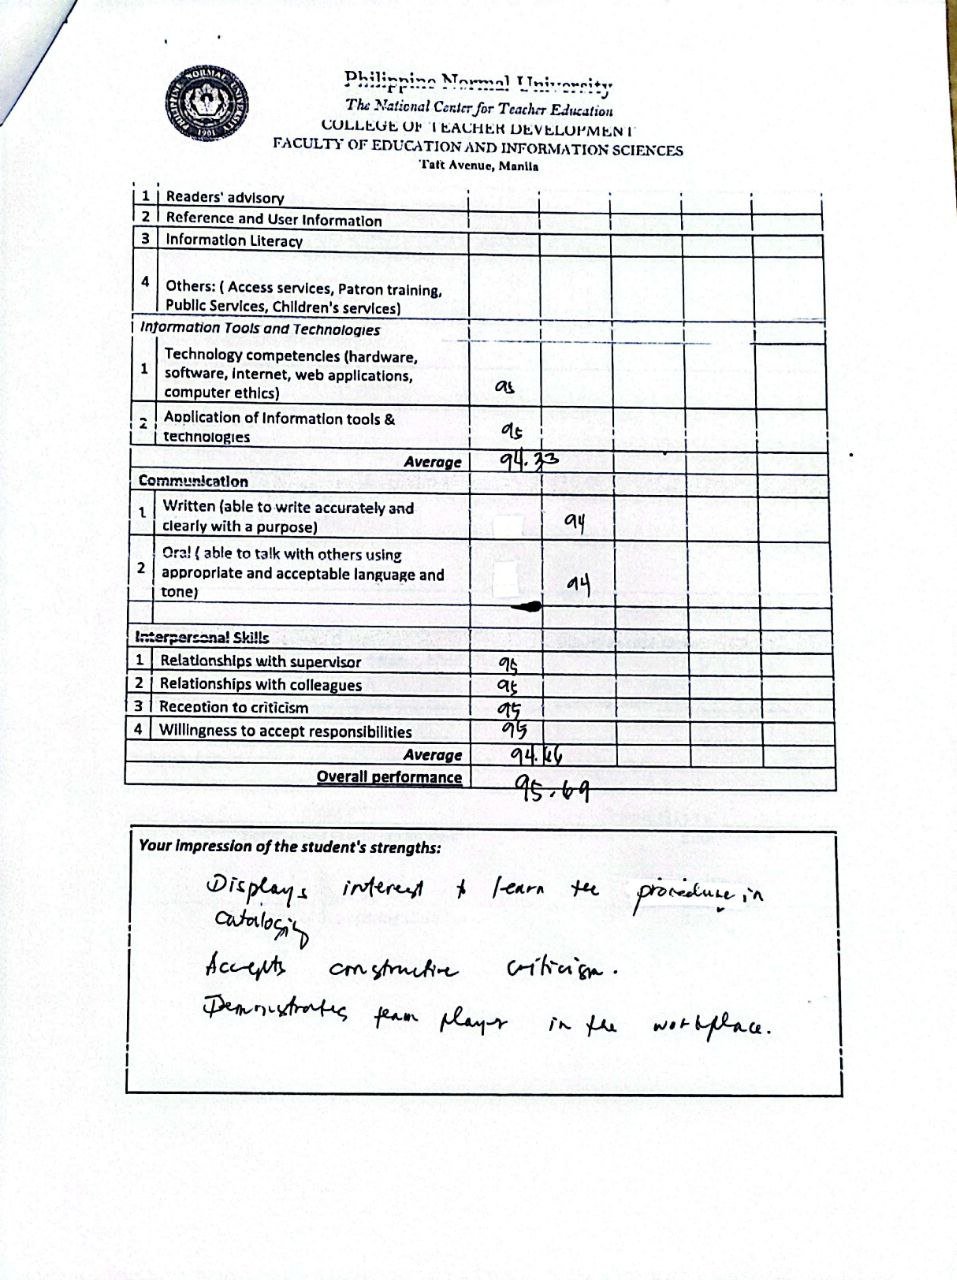 PHILIPPINE NORMAL UNIVERSITY
1901
Philippine Normal University
The National Center for Teacher Education
COLLEGE OF TEACHER DEVELOPMENT
FACULTY OF EDUCATION AND INFORMATION SCIENCES
Taft Avenue, Manila
1 Readers' advisory
2 Reference and User Information
3 Information Literacy
4 Others: ( Access services, Patron training,
Public Services, Children's services)
Information Tools and Technologies
1 Technology competencies (hardware,
software, internet, web applications,
computer ethics) 95
2 Application of Information tools &
technologies 95
Average 94.33
Communication
1 Written (able to write accurately and
clearly with a purpose) 94
2 Oral ( able to talk with others using
appropriate and acceptable language and
tone) 94
Interpersonal Skills
1 Relationships with supervisor 95
2 Relationships with colleagues 95
3 Reception to criticism 95
4 Willingness to accept responsibilities 95
Average 94.66
Overall performance 95.69
Your impression of the student's strengths:
Displays interest to learn the procedure in
cataloging
Accepts constructive criticism.
Demonstrates team player in the workplace.